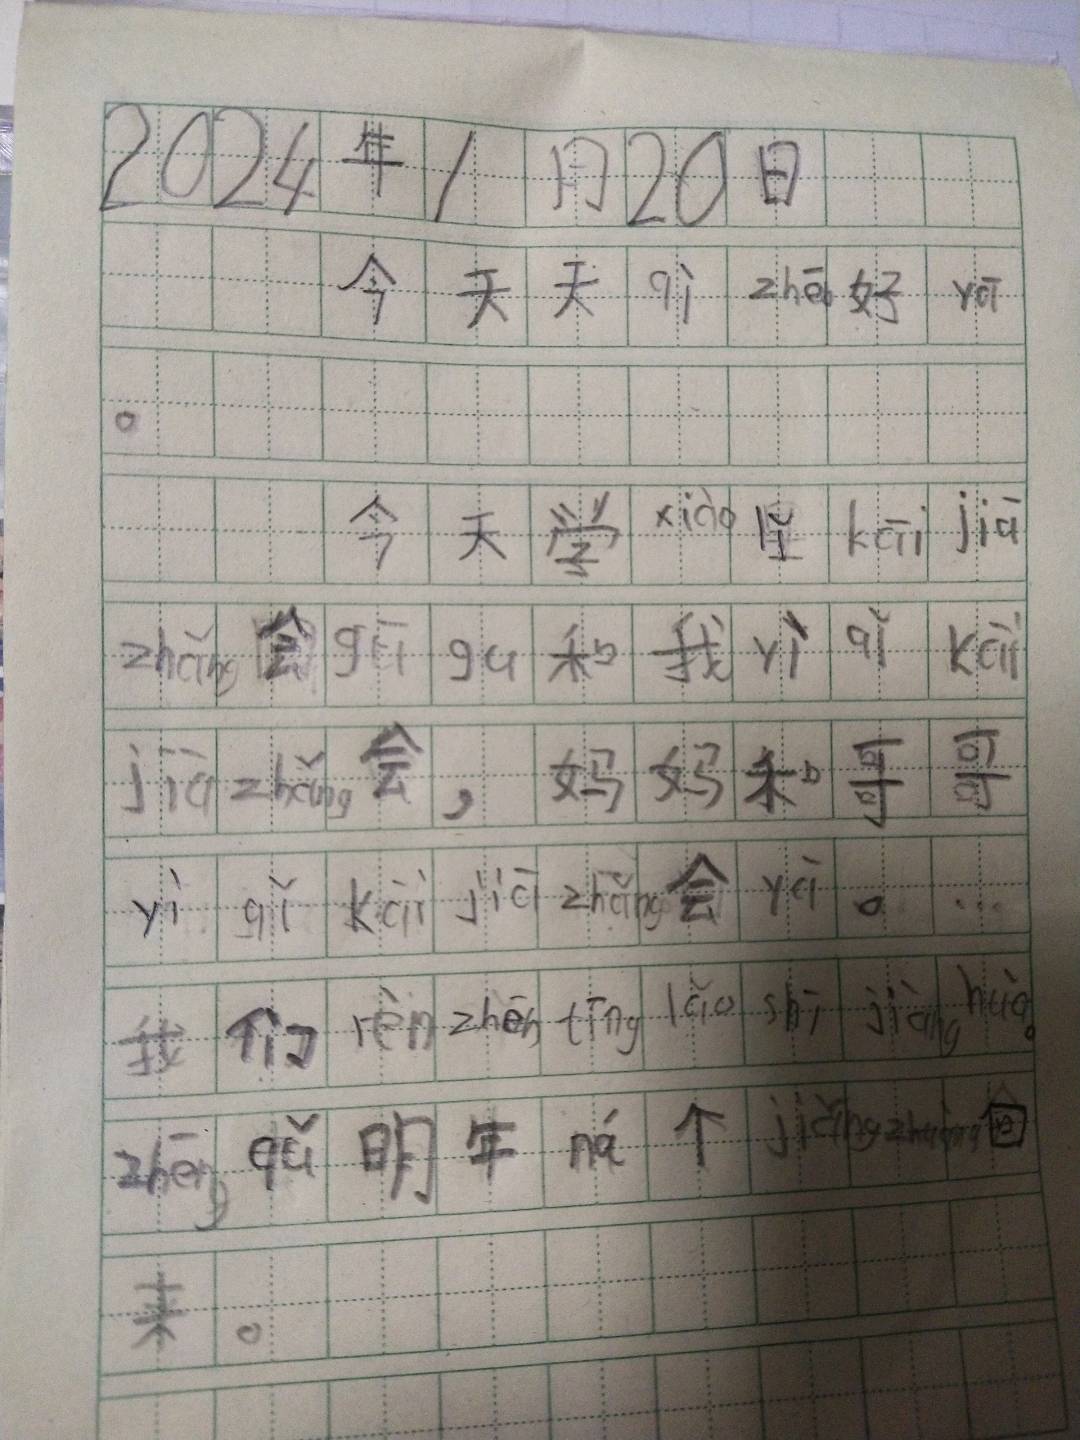 2024年1月20日
今天天qì zhēn好yā
。
今天学xiào里kāi jiā
zhǎng会gū gu和我yì qǐ kāi
jiā zhǎng会，妈妈和哥哥
yì qǐ kāi jiā zhǎng会yā。…
我们rèn zhēn tīng lǎo shī jiǎng huà。
zhēng qǔ明年ná个jiǎng zhuàng回
来。